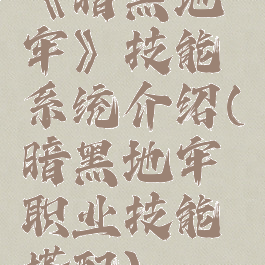 《暗黑地
牢》技能
系统介绍(
暗黑地牢
职业技能
搭配)